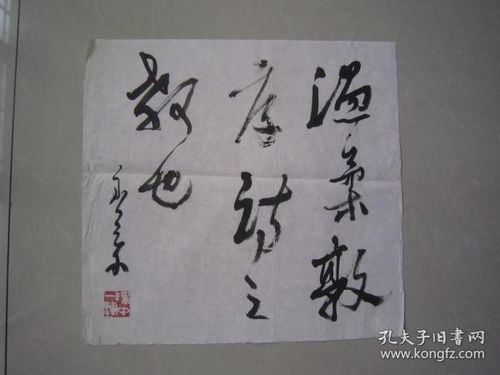 温柔敦
厚诗之
教也
孔夫子旧书网
www.kongfz.com